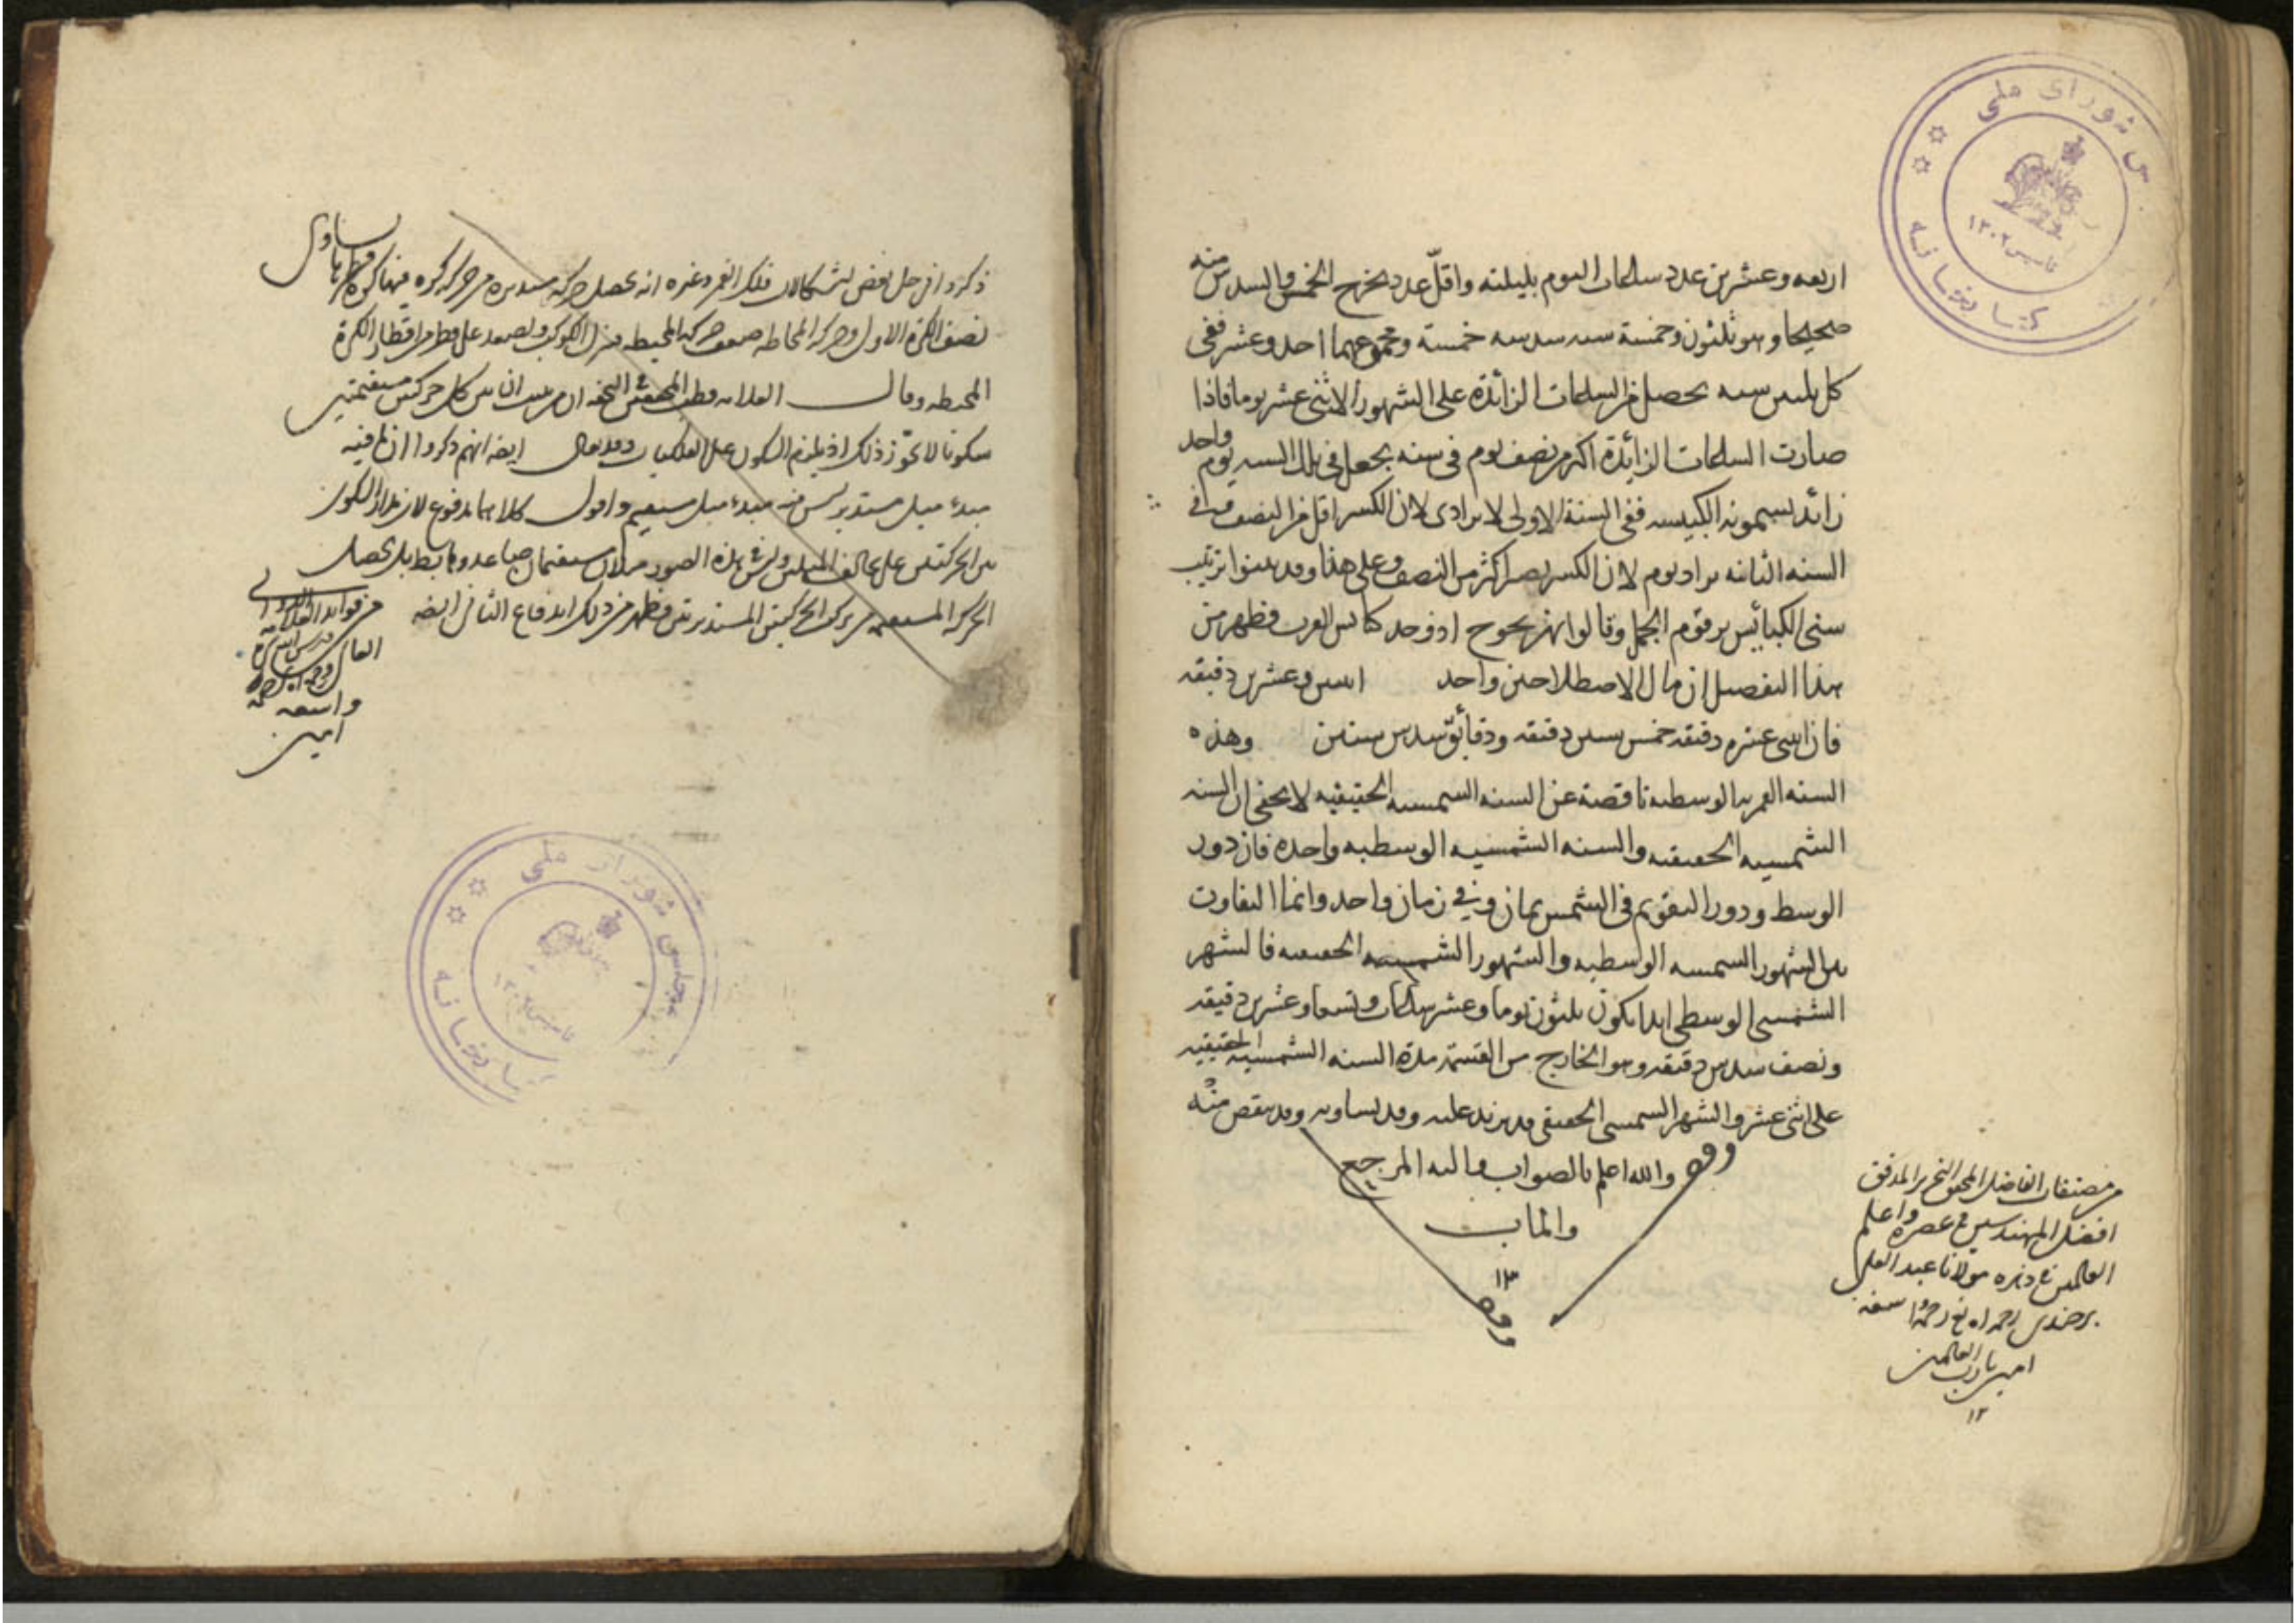 اربعه وعشرين عدد ساعات اليوم بليلته واقلّ عدد يخرج الخمس والسدس منه
صحيحا وهو ثلثون وخمسة سدسه خمسة ومجموعهما احد وعشر ففى
كل سنه يحصل من الساعات الزائدة على الشهور الاثنى عشر يوما فاذا
صارت الساعات الزائدة اكثر من نصف يوم فى سنه يجعل فى تلك السنه يوم واحد
زائد يسمونه الكبيسه ففى السنة الاولى لا يزاد لان الكسر اقل من النصف وفى
السنه الثانيه يزاد يوم لان الكسر يصير اكثر من النصف وعلى هذا وقد بينوا ترتيب
سنى الكبائس برقوم الجمل وقالوا بهزيجوح ادوط كبائس العرب فظهر من
هذا التفصيل ان مال الاصطلاحين واحد اثنين وعشرين دقيقه
فان اثنى عشره دقيقه خمس ستين دقيقه ودقائق سدس ستين وهذه
السنه القمريه الوسطيه ناقصة عن السنه الشمسيه الحقيقيه لا يخفى ان السنه
الشمسيه الحقيقيه والسنه الشمسيه الوسطيه واحده فان دور
الوسط ودور التقويم فى الشمس يمان فى زمان واحد وانما التفاوت
بين الشهور الشمسيه الوسطيه والشهور الشمسيه الحقيقيه فالشهر
الشمسى الوسطى ابدا يكون ثلثون يوما وعشر ساعات وتسعا وعشرين دقيقه
ونصف سدس دقيقه وهو الخارج من القسمة مدة السنه الشمسيه الحقيقيه
على اثنى عشر والشهر الشمسى الحقيقى قد يزيد عليه وقد يساويه وقد ينقص منه
والله اعلم بالصواب واليه المرجع
والماب
١٢
من مصنفات الفاضل المحقق النحرير المدقق
افضل المهندسين فى عصره واعلم
العالمين فى دهره مولانا عبد العلى
برجندى رحمه الله رحمة واسعه
امين يا رب العالمين
١٢
ذكروا فى حل بعض اشكالات فلك القمر وغيره انه يحصل حركه من حركة كره فيها كره قطرها يساوى
نصف الكرة الاولى وحركة المحاطه ضعف حركة المحيطه فينزل الكوكب ويصعد على قطر من اقطار الكرة
المحيطه وقال العلامه قطب المحققين فى التحفه ان من يثبت ان بين كل حركتين مستقيمتين
سكونا لا يجوّز ذلك اذ يلزم السكون على الفلكيات وقد يقال ايضا انهم ذكروا ان ما فيه
مبدء ميل مستدير ليس فيه مبدء ميل مستقيم واقول كلاهما مدفوع لان السكون
بين الحركتين على تخالف الميلين وليس فى هذه الصور ميلان مستقيمان صاعد وهابط بل يحصل
الحركة المستقيمه من تركب الحركتين المستديرتين فظهر من ذلك اندفاع الثانى ايضا
من فوائد العلامه
واسعه
امين
مجلس شوراى ملى
كتابخانه
تاسيس ١٣٠٢